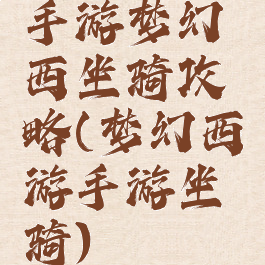 手游梦幻
西坐骑攻
略(梦幻西
游手游坐
骑)